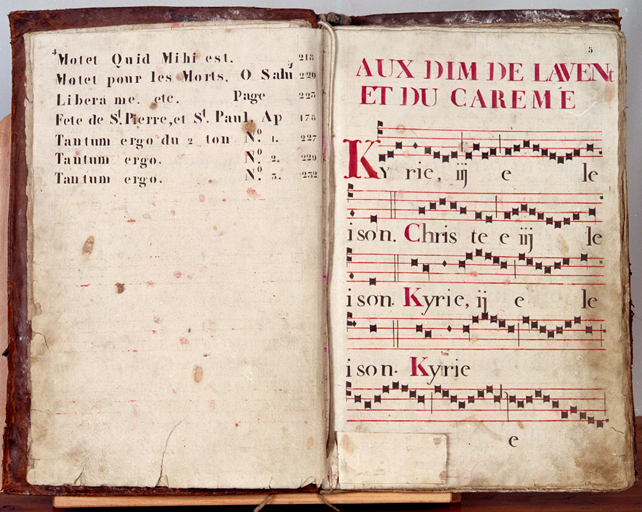 4
Motet Quid Mihi est. 218
Motet pour les Morts, O Salu 220
Libera me. etc. Page 223
Fete de St. Pierre, et St. Paul, Ap 178
Tantum ergo du 2 ton No. 1. 227
Tantum ergo. No. 2. 229
Tantum ergo. No. 3. 232
5
AUX DIM DE LAVENt
ET DU CAREME
Ky rie, iij e le
ison. Chris te e iij le
ison. Kyrie, ij e le
ison. Kyrie
e